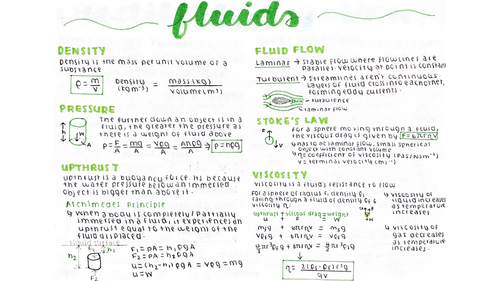 fluids
DENSITY
Density is the mass per unit volume of a
substance
ρ = m/V
Density (kgm⁻³) = mass(kg)/volume(m³)
PRESSURE
The further down an object is in a
fluid, the greater the pressure as
there is a weight of fluid above
h
A
P = F/A = mg/A = Vρg/A = Ahρg/A → P = hρg
UPTHRUST
upthrust is a buoyancy force. Its because
the water pressure below an immersed
object is bigger than above it.
Archimedes Principle
↳ When a body is completely/partially
immersed in a fluid, it experiences an
upthrust equal to the weight of the
fluid displaced.
liquid surface
h₂
F₁
h₁
F₂
F₁ = PA = h₁ρgA
F₂ = PA = h₂ρgA
U = (h₂-h₁)ρgA = Vρg = mg
U = W
FLUID FLOW
Laminar → stable flow where flowlines are
parallel. velocity at point is constant
Turbulent → streamlines aren't continuous
Layers of fluid cross into each other,
forming eddy currents.
turbulence
laminar flow
STOKE'S LAW
For a sphere moving through a fluid,
the viscous drag is given by F = 6πrηV
↳ has to be laminar flow, small spherical
object with constant volume
VISCOSITY
Viscosity is a fluid's resistance to flow
For a sphere of radius r, density
falling through a fluid of density
viscosity η:
upthrust + viscous drag = weight
↳ viscosity of
liquid increases
as temperature
increases
↳ viscosity of
gas decreases
as temperature
increases.